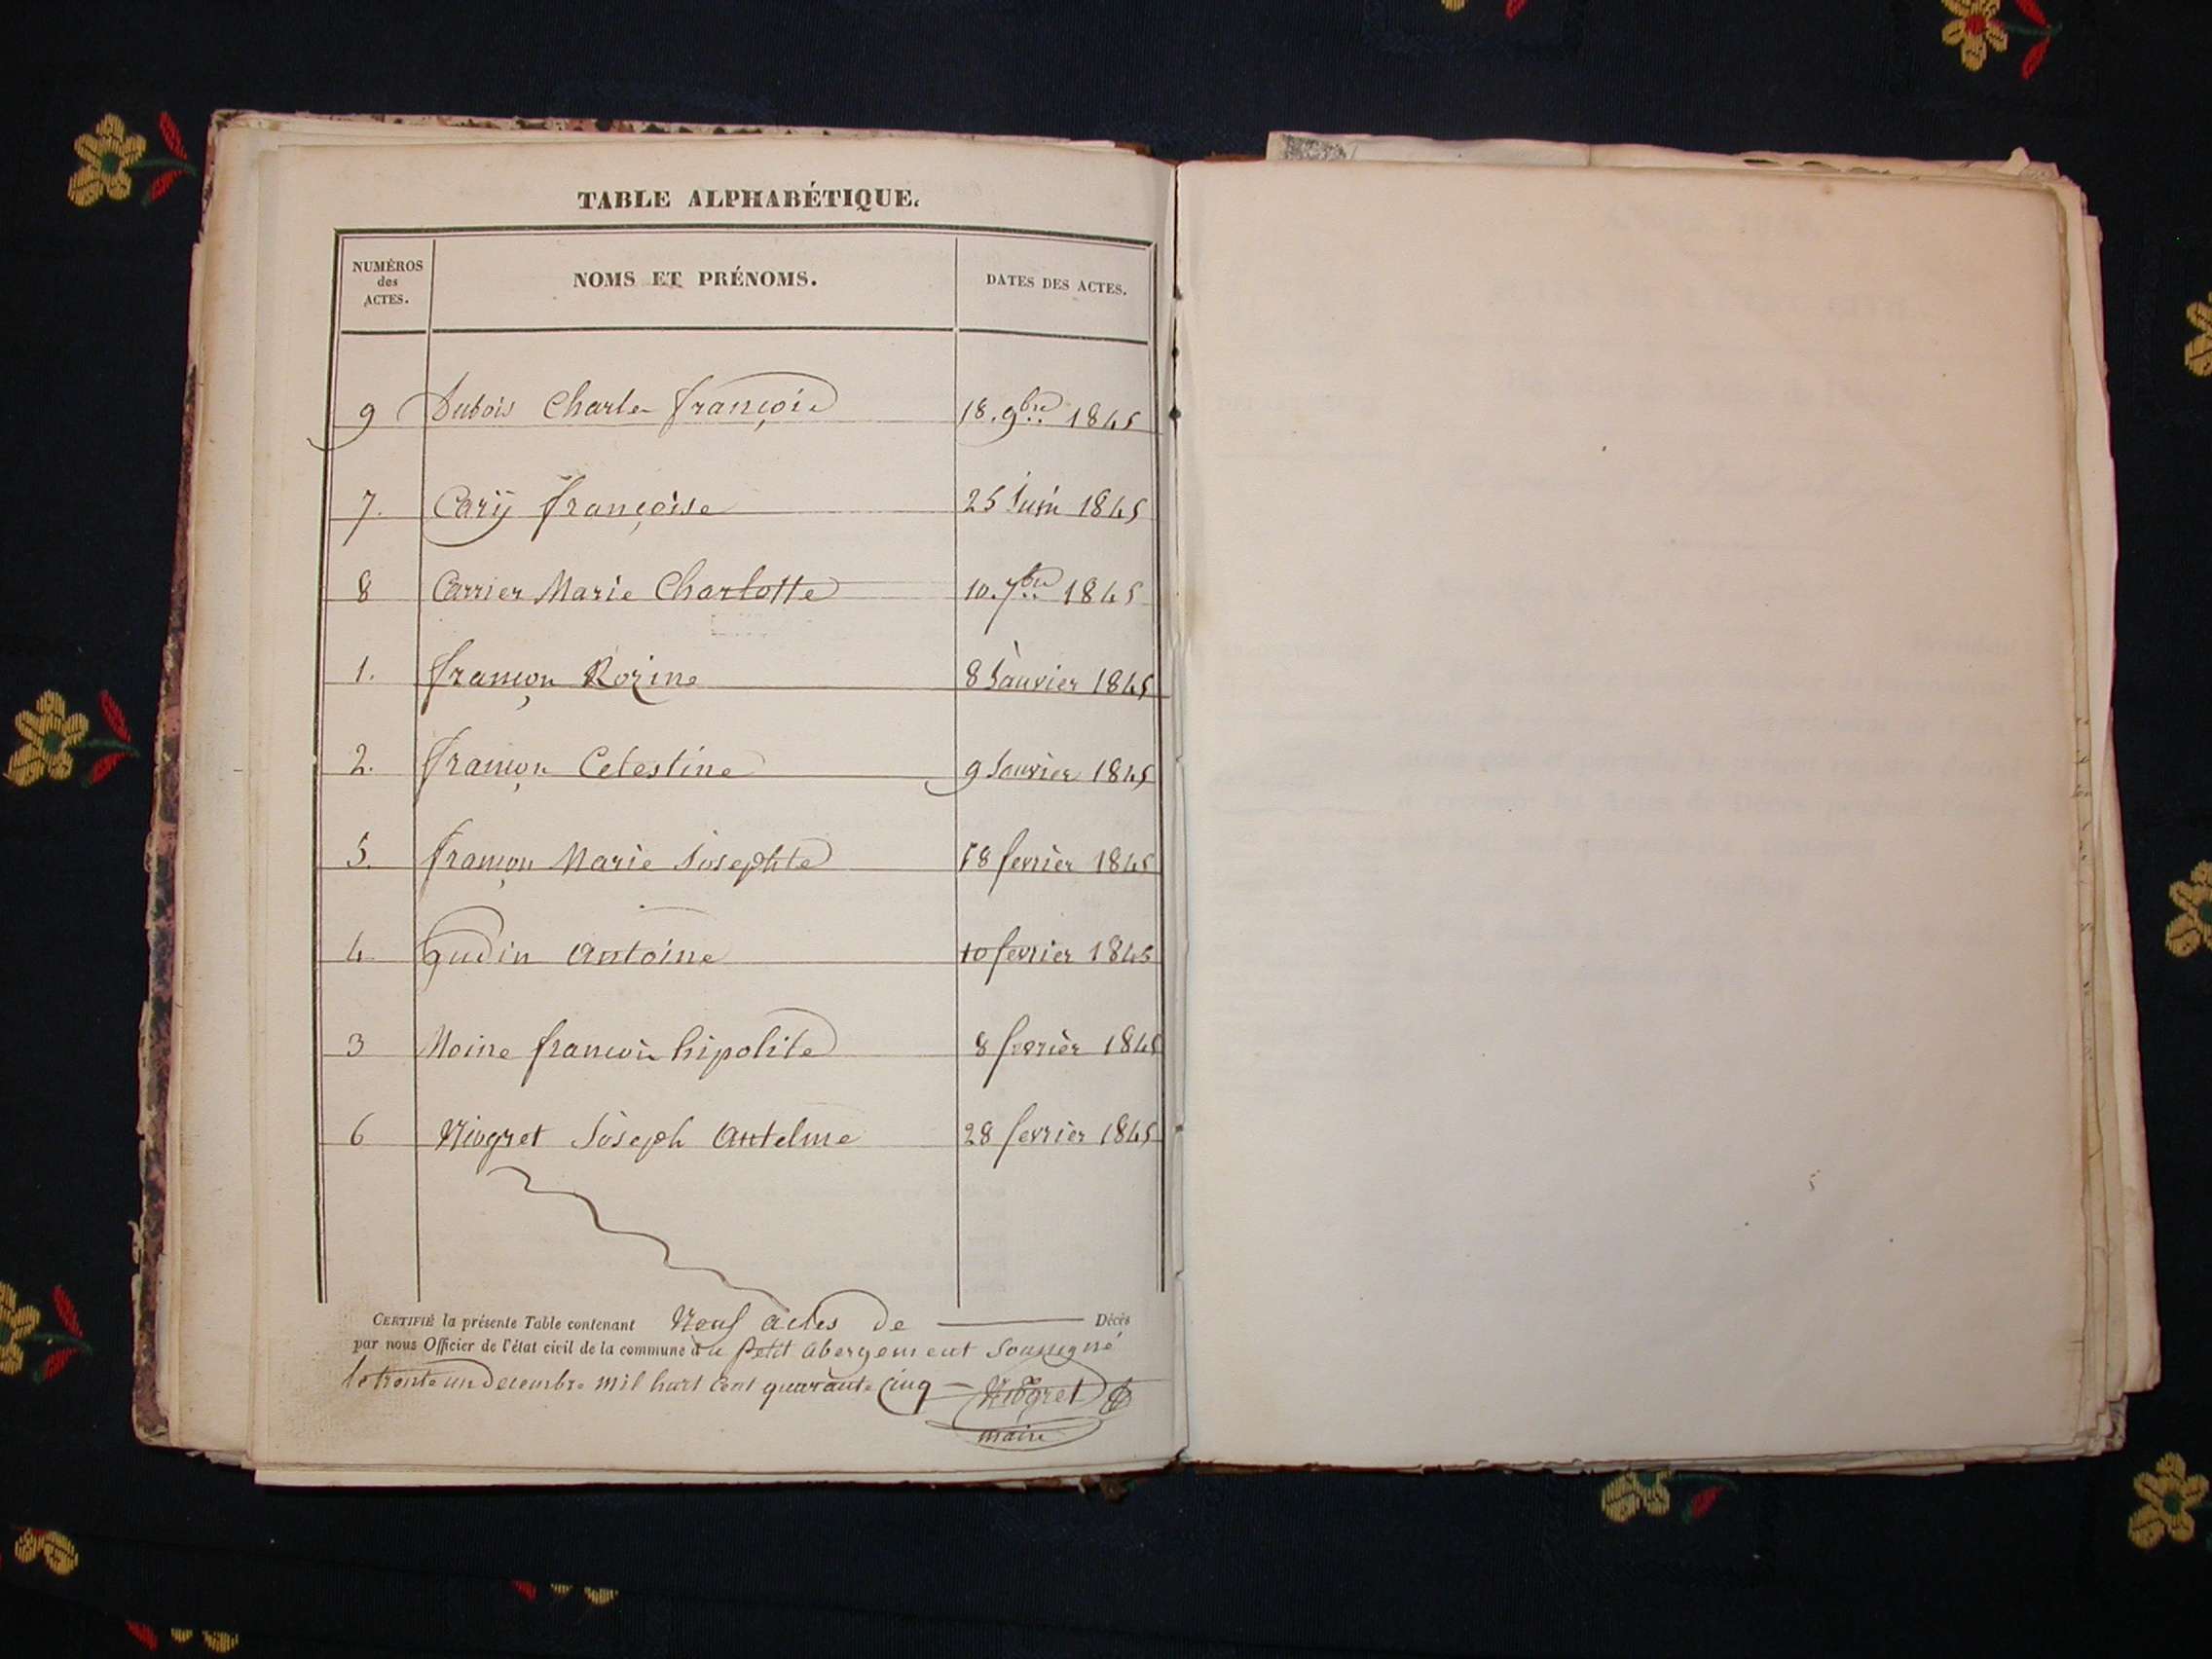 TABLE ALPHABÉTIQUE.
NUMÉROS
des
ACTES.
NOMS ET PRÉNOMS.
DATES DES ACTES.
9 Dubois Charles françois 18. 9bre 1845
7. Cary françoise 25 Juin 1845
8 Carrier Marie Charlotte 10. 7bre 1845
1. françon Rozine 8 Janvier 1845
2. françon Celestine 9 Janvier 1845
5. françon Marie Josephte 18 fevrier 1845
4 Gudin Antoine 10 fevrier 1845
3 Moine francois hipolite 8 fevrièr 1845
6 Niogret Joseph Antelme 28 fevrièr 1845
CERTIFIÉ la présente Table contenant Neuf actes de Décès
par nous Officier de l'état civil de la commune du petit abergement soussigné
le trente un decembre mil huit cent quarante cinq Niogret
maire